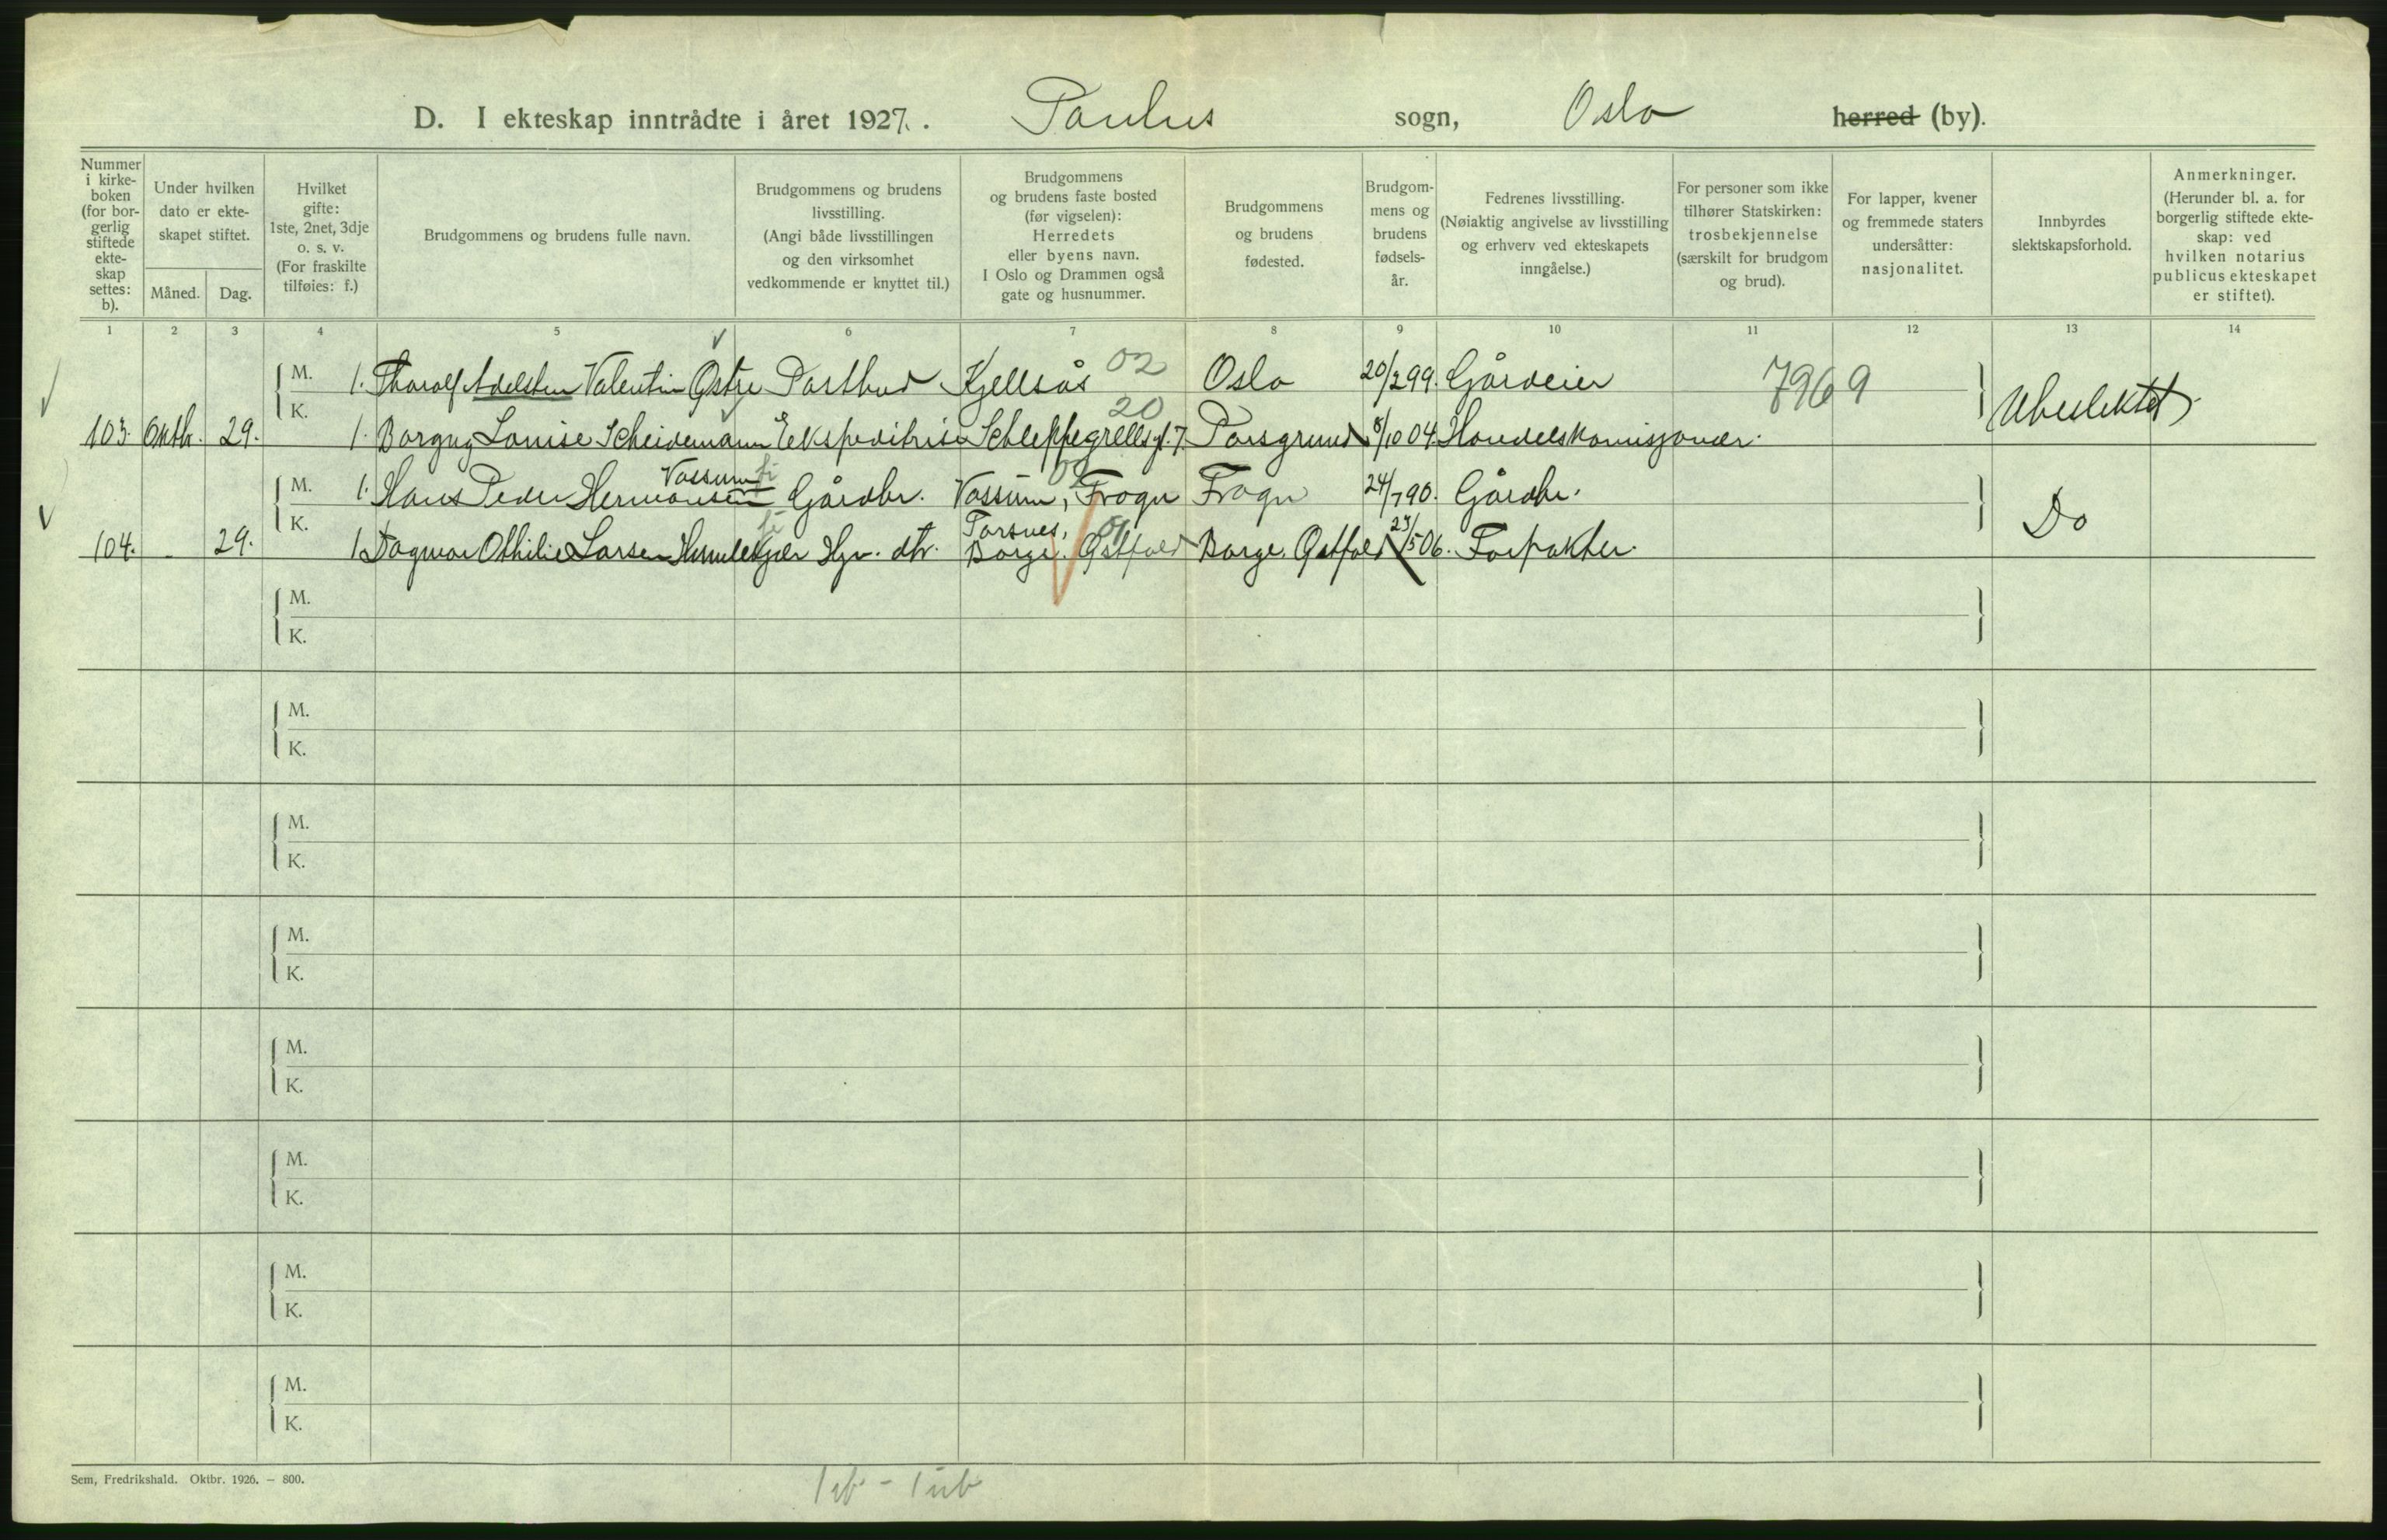 D. I ekteskap inntrådte i året 1927. Paulus sogn, Oslo herred (by).
Nummer i kirkeboken (for borgerlig stiftede ekteskap settes: b).
Under hvilken dato er ekteskapet stiftet.
Måned. Dag.
Hvilket gifte: 1ste, 2net, 3dje o. s. v. (For fraskilte tilføies: f.)
Brudgommens og brudens fulle navn.
Brudgommens og brudens livsstilling. (Angi både livsstillingen og den virksomhet vedkommende er knyttet til.)
Brudgommens og brudens faste bosted (før vigselen): Herredets eller byens navn. I Oslo og Drammen også gate og husnummer.
Brudgommens og brudens fødested.
Brudgommens og brudens fødselsår.
Fedrenes livsstilling. (Nøiaktig angivelse av livsstilling og erhverv ved ekteskapets inngåelse.)
For personer som ikke tilhører Statskirken: trosbekjennelse (særskilt for brudgom og brud).
For lapper, kvener og fremmede staters undersåtter: nasjonalitet.
Innbyrdes slektskapsforhold.
Anmerkninger. (Herunder bl. a. for borgerlig stiftede ekteskap: ved hvilken notarius publicus ekteskapet er stiftet).
1 2 3 4 5 6 7 8 9 10 11 12 13 14
02
M. 1. Thorolf Adelsten Valentin Østre Postbud Kjellsås Oslo 20/2 99. Gårdeier 7969
20
K. 103. Oktbr. 29. 1. Borgny Louise Scheidemann Ekspeditrise Schleppegrellsgt. 7. Porsgrund 8/10 04. Handelskomisjonær. Ubeslektet
Vassum
M. 1. Hans Peder Hermansen Gårdbr. Vassum, Frogn Frogn 24/7 90. Gårdbr.
Torsnes,
K. 104. - 29. 1. Dagmar Othilie Larsen Humlekjær Hjv. dtr. Borge, Østfold Borge, Østfold 23/5 06. Forpakter. Do
M.
K.
M.
K.
M.
K.
M.
K.
M.
K.
M.
K.
M.
K.
M.
K.
Sem, Fredrikshald. Oktbr. 1926. — 800.